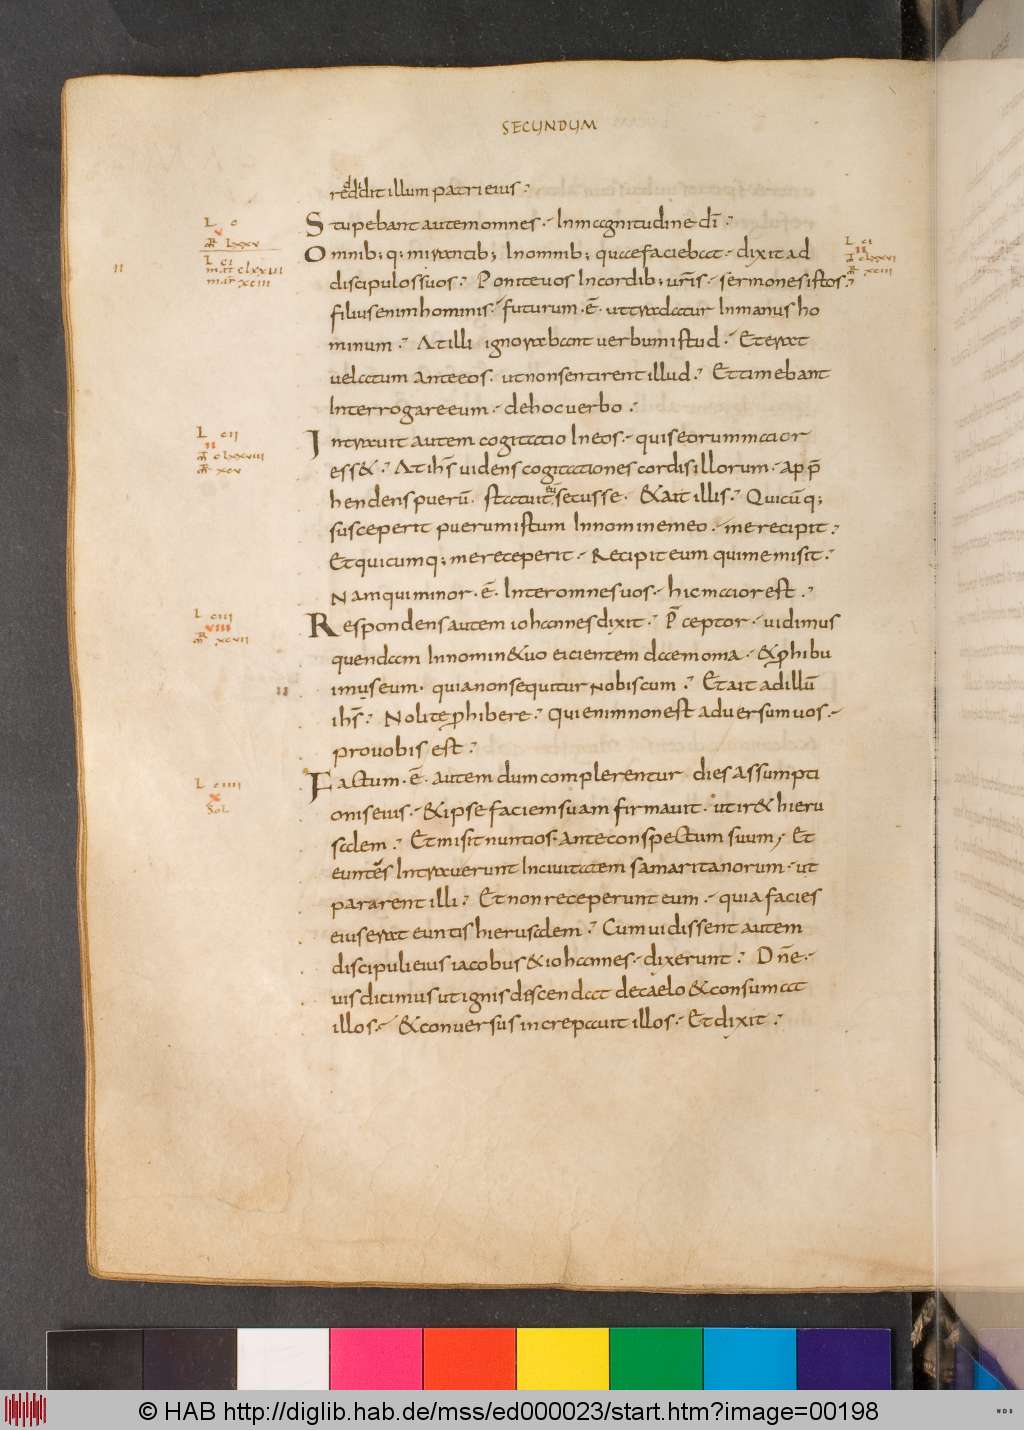 SECUNDUM
reddidit illum patri eius.
Stupebant autem omnes. In magnitudine dī.
L c
mr lxxv
Omnib; q; mirantib; In omnib; quae faciebat. dixit ad
L ci
matt clxxvii
mar xciii
L ci
II
clxxvi
mr xciii
discipulos suos. Ponite uos In cordib; uris. sermones istos.
filius enim hominis. futurum. ē. ut tradatur In manus ho
minum. At illi ignorabant uerbum istud. Et erat
uelatum Ante eos. ut non sentirent illud. Et timebant
Interrogare eum. de hoc uerbo.
L cii
II
clxxviii
mr xcv
Intrauit autem cogitatio In eos. quis eorum maior
ess&. At ihs uidens cogitationes cordis illorum. app
hendens puerū. statuit eū secus se. &ait illis. Quicūq;
susceperit puerum istum In nomine meo. me recipit.
Et quicumq; me receperit. Recipit eum qui me misit.
Nam qui minor. ē. Inter omnes uos. hic maior est.
L ciii
VIII
mr xcvii
Respondens autem iohannes dixit. Pceptor. uidimus
quendam In nomin& uo eicientem daemonia. & phibu
imus eum. quia non sequitur nobiscum. Et ait ad illū
ihs. Nolite phibere. Qui enim non est aduersum uos.
pro uobis est.
L ciiii
X
Sol
Factum. ē. autem dum complerentur dies Assumpti
onis eius. & ipse faciem suam firmauit. ut ir& hieru
salem. Et misit nuntios. Ante conspectum suum. Et
euntes Intrauerunt In ciuitatem samaritanorum. ut
pararent illi. Et non receperunt eum. quia facies
eius erat euntis hierusalem. Cum uidissent autem
discipuli eius iacobus & iohannes. dixerunt. Dne.
uis dicimus ut ignis descendat de caelo & consumat
illos. & conuersus increpauit illos. Et dixit.
© HAB http://diglib.hab.de/mss/ed000023/start.htm?image=00198